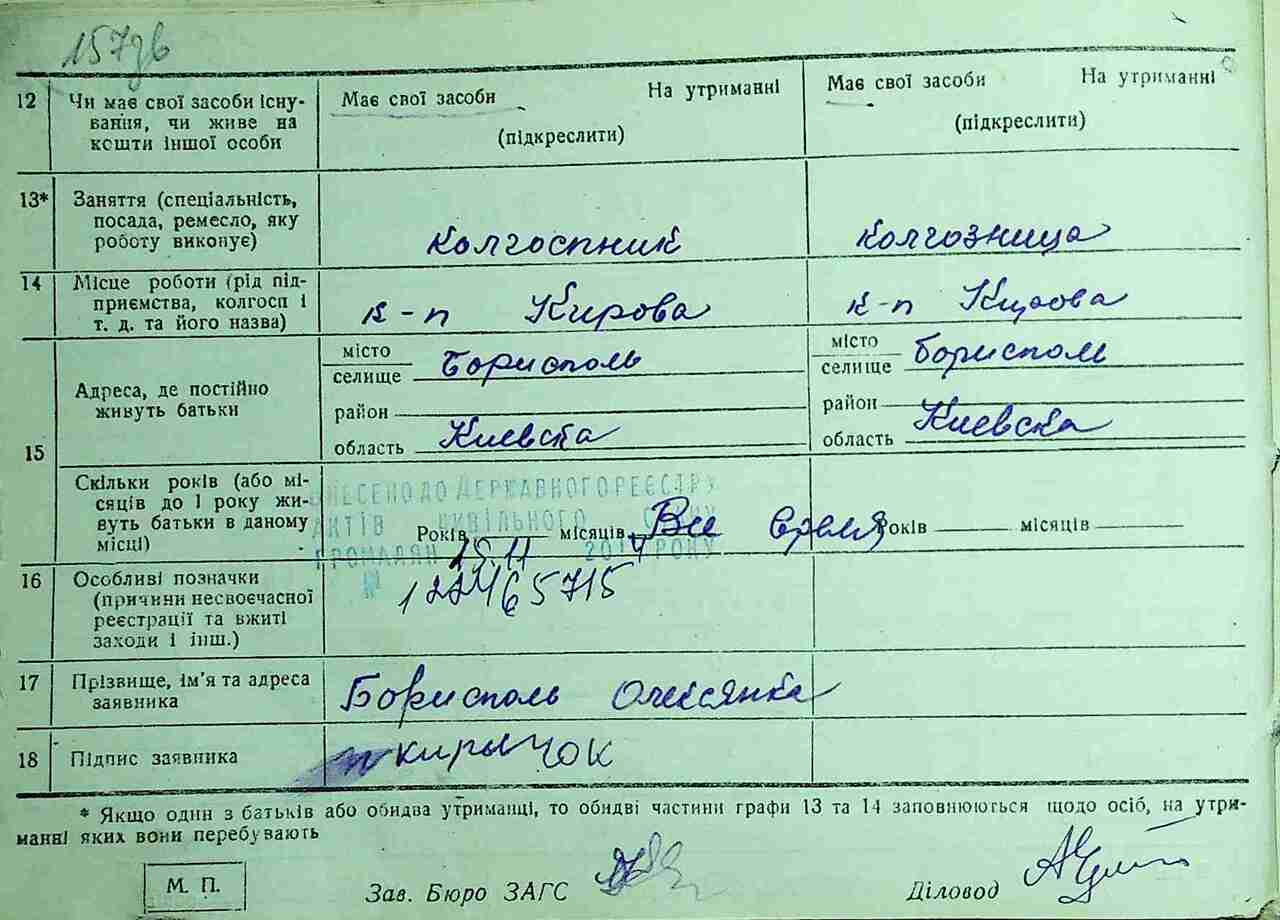 157зв
12 Чи має свої засоби існу-
вання, чи живе на
кошти іншої особи
Має свої засоби На утриманні
(підкреслити)
Має свої засоби На утриманні
(підкреслити)
13* Заняття (спеціальність,
посада, ремесло, яку
роботу виконує)
Колгоспник
Колгозница
14 Місце роботи (рід під-
приємства, колгосп і
т. д. та його назва)
к-п Кирова
к-п Кирова
15 Адреса, де постійно
живуть батьки
місто
селище Борисполь
район
область Киевска
місто
селище Борисполь
район
область Киевска
Скільки років (або мі-
сяців до 1 року жи-
вуть батьки в даному
місці)
Років місяців Все время
Років місяців
ВНЕСЕНО ДО ДЕРЖАВНОГО РЕЄСТРУ
АКТІВ ЦИВІЛЬНОГО СТАНУ
ГРОМАДЯН 15.11 2017 РОКУ
№ 122465715
16 Особливі позначки
(причини несвоєчасної
реєстрації та вжиті
заходи і інш.)
17 Прізвище, ім'я та адреса
заявника
Борисполь
18 Підпис заявника
* Якщо один з батьків або обидва утриманці, то обидві частини графи 13 та 14 заповнюються щодо осіб, на утри-
манні яких вони перебувають
М. П.
Зав. Бюро ЗАГС
Діловод